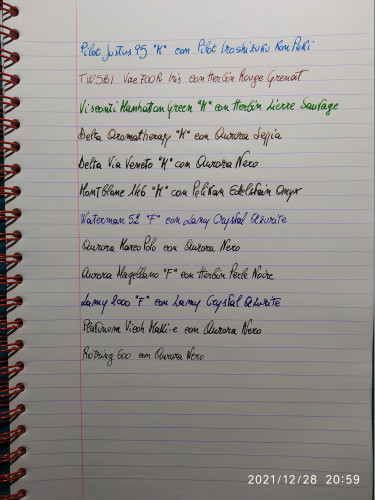 Pilot Justus 95 "M" con Pilot Iroshizuku Kon Peki
TWSBI Vac 700R Iris con Herbin Rouge Grenat
Visconti Manhattan Green "M" con Herbin Lierre Sauvage
Delta Aromatherapy "M" con Aurora Seppia
Delta Via Veneto "M" con Aurora Nero
Montblanc 146 "M" con Pelikan Edelstein Onyx
Waterman 52 "F" con Lamy Crystal Azurite
Aurora Marco Polo con Aurora Nero
Aurora Magellano "F" con Herbin Perle Noire
Lamy 2000 "F" con Lamy Crystal Azurite
Platinum Maki-e con Aurora Nero
Rotring 600 con Aurora Nero
2021/12/28 20:59